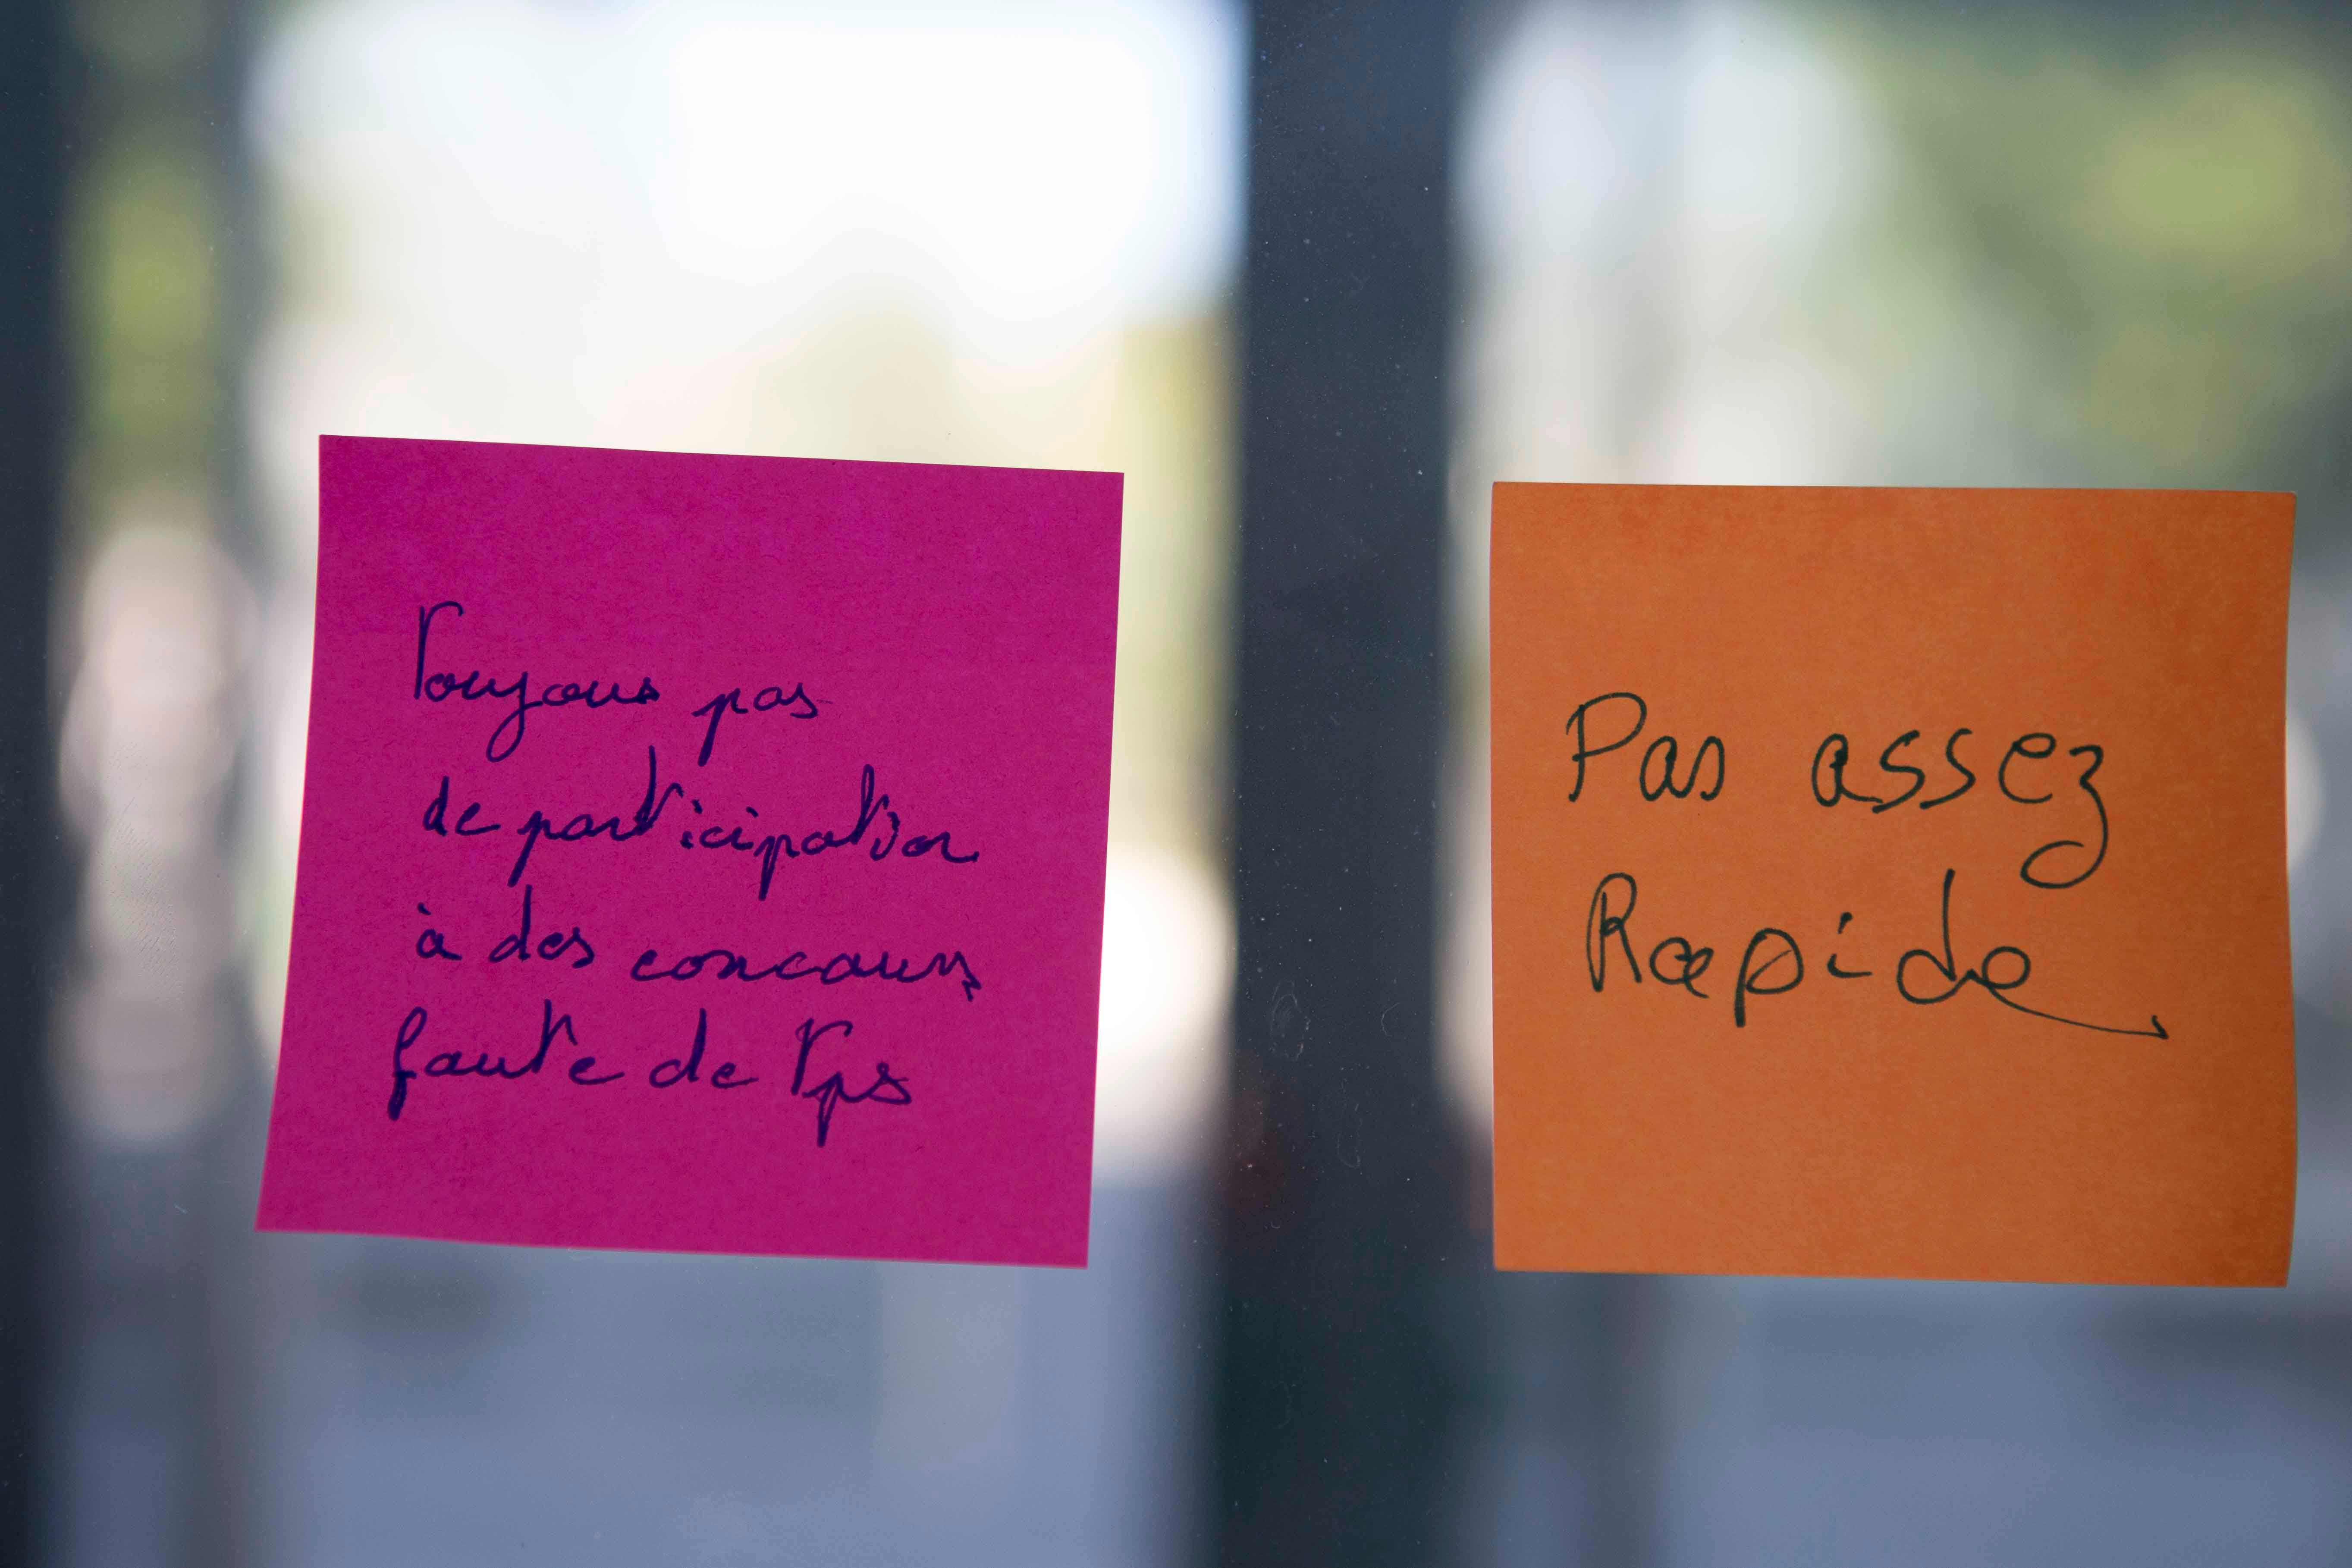 Toujours pas
de participation
à des concours
faute de Tps
Pas assez
Rapide